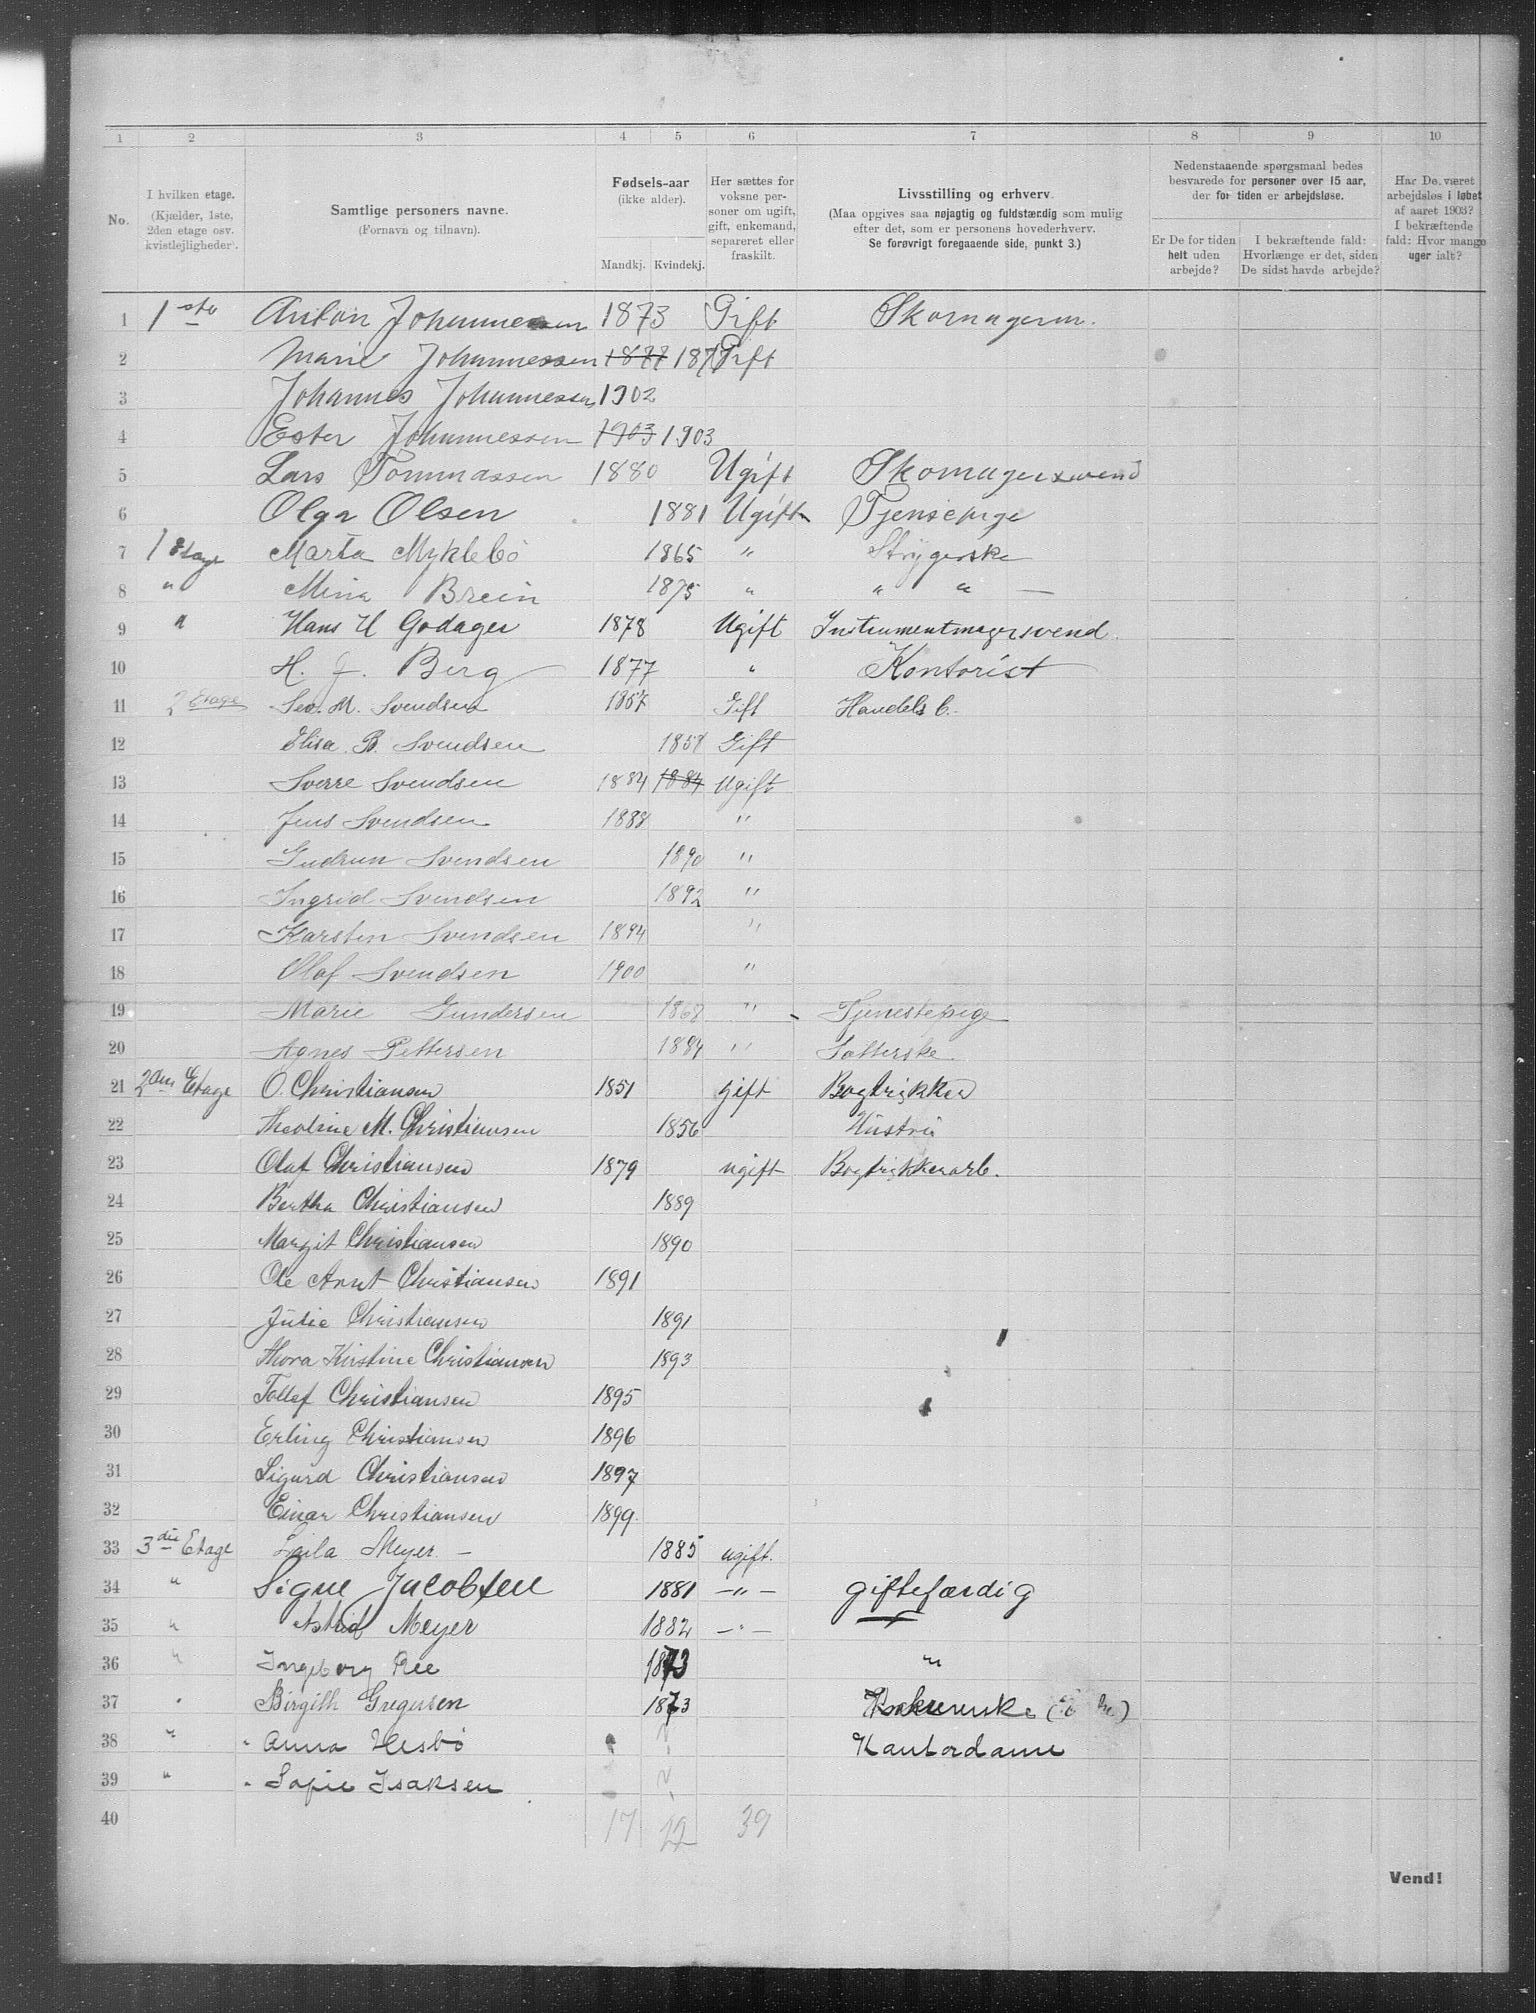 1 2 3 4 5 6 7 8 9 10
No.
I hvilken etage. (Kjælder, 1ste, 2den etage osv. kvistlejligheder).
Samtlige personers navne. (Fornavn og tilnavn).
Fødsels-aar (ikke alder). Mandkj. Kvindekj.
Her sættes for voksne personer om ugift, gift, enkemand, separeret eller fraskilt.
Livsstilling og erhverv. (Maa opgives saa nøjagtig og fuldstændig som mulig efter det, som er personens hovederhverv. Se forøvrigt foregaaende side, punkt 3.)
Nedenstaaende spørgsmaal bedes besvarede for personer over 15 aar, der for tiden er arbejdsløse.
Er De for tiden helt uden arbejde?
I bekræftende fald: Hvorlænge er det, siden De sidst havde arbejde?
Har De været arbejdsløs i løbet af aaret 1903? I bekræftende fald: Hvor mange uger ialt?
1 1ste Anton Johannessen 1873 Gift Skomagerm.
2 Marie Johannessen 1877 Gift
3 Johannes Johannessen 1902
4 Ester Johannessen 1903 1903
5 Lars Tommassen 1880 Ugift Skomagersvend
6 Olga Olsen 1881 Ugift Tjenepige
7 1 Etage Marta Myklebö 1865 " Strygerske
8 " Mina Brein 1875 " " " —
9 " Hans H Godager 1878 Ugift Instrumentmagersvend.
10 H. J. Berg 1877 " Kontorist
11 2 Etage M. Svendsen 1857 Gift Handels b.
12 Elisa B. Svendsen Gift
13 Sverre Svendsen 1884 1884 Ugift
14 Jens Svendsen 1888 "
15 Gudrun Svendsen 1890 "
16 Ingrid Svendsen 1892 "
17 Karsten Svendsen 1894 "
18 Olaf Svendsen 1900 "
19 Marie Gundersen 1868 " Tjenestepige
20 Agnes Pettersen 1884 " Sætterske.
21 2den Etage O. Christiansen 1851 gift Bogtrykker
22 Theoline M. Christiansen 1856 Hustru
23 Olaf Christiansen 1879 ugift Bogtrykkerarb.
24 Bertha Christiansen 1889
25 Margit Christiansen 1890
26 Ole Arnt Christiansen 1891
27 Julie Christiansen 1891
28 Thora Kirstine Christiansen 1893
29 Tollef Christiansen 1895
30 Erling Christiansen 1896
31 Sigurd Christiansen 1897
32 Einar Christiansen 1899.
33 3die Etage Laila Meyer — 1885 ugift.
34 " Signe Jacobsen 1881 —"— giftefærdig
35 " Astrid Meyer 1882 —"—
36 " Ingeborg Ree 1873 "
37 " Birgith Gregersen 1873
38 " Anna Hesbö Kantordame
39 " Sofie Isaksen
40 17 22 39
Vend!